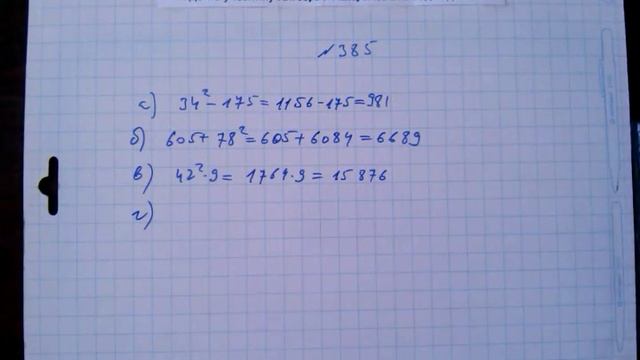 №385
а) 34² - 175 = 1156 - 175 = 981
б) 605 + 78² = 605 + 6084 = 6689
в) 42² · 9 = 1764 · 9 = 15876
г)